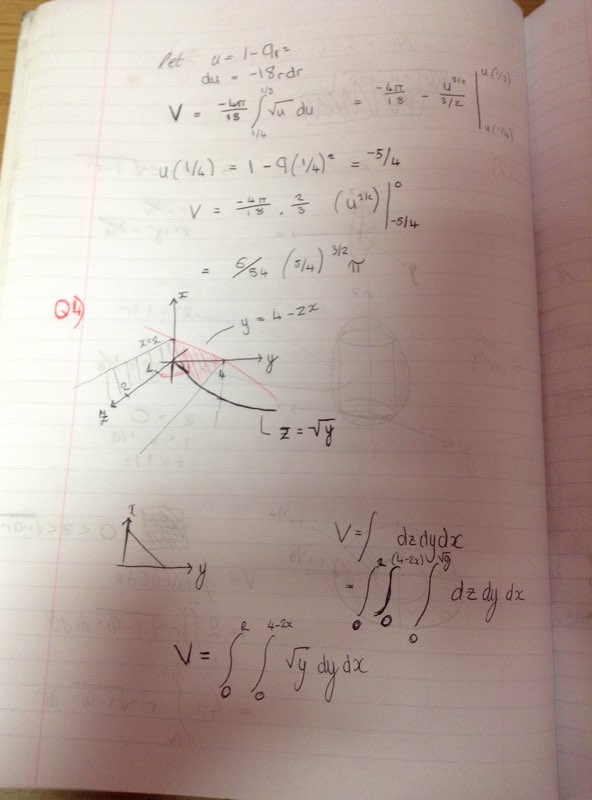 let u = 1-9r²
du = -18rdr
V = -4π/18 ∫_{1/4}^{1/3} √u du = -4π/18 - u^{3/2}/(3/2) |_{u(1/4)}^{u(1/3)}
u(1/4) = 1-9(1/4)² = -5/4
V = -4π/18 . 2/3 (u^{3/2}) |_{-5/4}^{0}
= 6/54 (5/4)^{3/2} π
Q4)
x
y = 4-2x
x=2
y
4
2
2
z
z = √y
x
y
V = ∫ dzdydx
= ∫_0^2 ∫_0^{(4-2x)} ∫_0^{√y} dz dy dx
V = ∫_0^2 ∫_0^{4-2x} √y dy dx